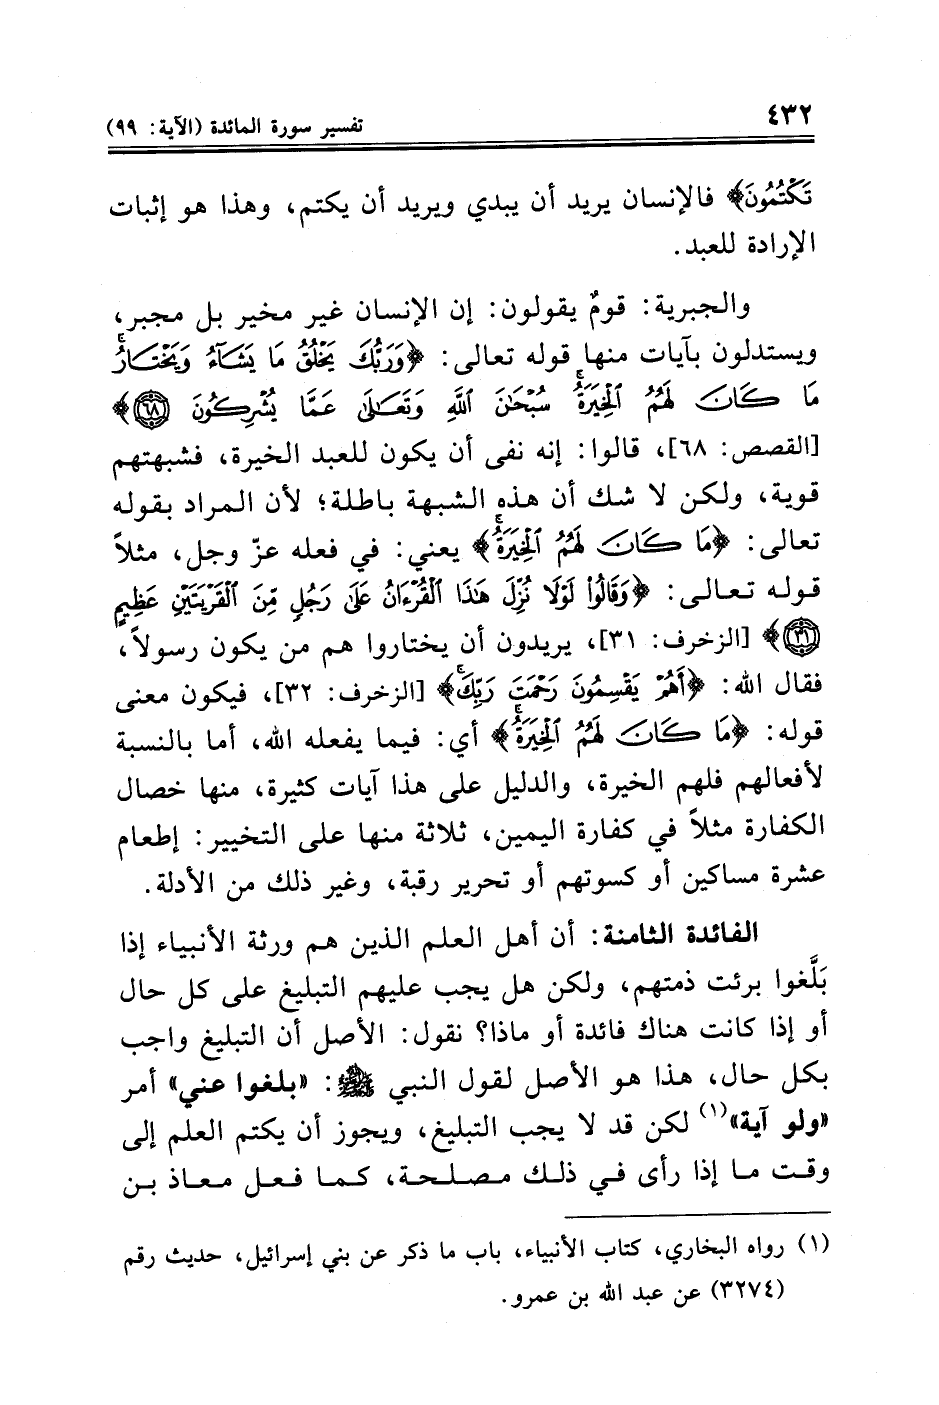 ٤٣٢
تفسير سورة المائدة (الآية: ٩٩)
تَكْتُمُونَ﴾ فالإنسان يريد أن يبدي ويريد أن يكتم، وهذا هو إثبات
الإرادة للعبد.
والجبرية: قومٌ يقولون: إن الإنسان غير مخير بل مجبر،
ويستدلون بآيات منها قوله تعالى: ﴿وَرَبُّكَ يَخْلُقُ مَا يَشَآءُ وَيَخْتَارُۗ
مَا كَانَ لَهُمُ ٱلْخِيَرَةُۚ سُبْحَٰنَ ٱللَّهِ وَتَعَٰلَىٰ عَمَّا يُشْرِكُونَ ٦٨﴾
[القصص: ٦٨]، قالوا: إنه نفى أن يكون للعبد الخيرة، فشبهتهم
قوية، ولكن لا شك أن هذه الشبهة باطلة؛ لأن المراد بقوله
تعالى: ﴿مَا كَانَ لَهُمُ ٱلْخِيَرَةُۚ﴾ يعني: في فعله عزّ وجل، مثلاً
قوله تعالى: ﴿وَقَالُوا۟ لَوْلَا نُزِّلَ هَٰذَا ٱلْقُرْءَانُ عَلَىٰ رَجُلٍ مِّنَ ٱلْقَرْيَتَيْنِ عَظِيمٍ
٣١﴾ [الزخرف: ٣١]، يريدون أن يختاروا هم من يكون رسولاً،
فقال الله: ﴿أَهُمْ يَقْسِمُونَ رَحْمَتَ رَبِّكَۚ﴾ [الزخرف: ٣٢]، فيكون معنى
قوله: ﴿مَا كَانَ لَهُمُ ٱلْخِيَرَةُۚ﴾ أي: فيما يفعله الله، أما بالنسبة
لأفعالهم فلهم الخيرة، والدليل على هذا آيات كثيرة، منها خصال
الكفارة مثلاً في كفارة اليمين، ثلاثة منها على التخيير: إطعام
عشرة مساكين أو كسوتهم أو تحرير رقبة، وغير ذلك من الأدلة.
الفائدة الثامنة: أن أهل العلم الذين هم ورثة الأنبياء إذا
بَلَّغوا برئت ذمتهم، ولكن هل يجب عليهم التبليغ على كل حال
أو إذا كانت هناك فائدة أو ماذا؟ نقول: الأصل أن التبليغ واجب
بكل حال، هذا هو الأصل لقول النبي ﷺ: «بلغوا عني» أمر
«ولو آية»(١) لكن قد لا يجب التبليغ، ويجوز أن يكتم العلم إلى
وقت ما إذا رأى في ذلك مصلحة، كما فعل معاذ بن
(١) رواه البخاري، كتاب الأنبياء، باب ما ذكر عن بني إسرائيل، حديث رقم
(٣٢٧٤) عن عبد الله بن عمرو.